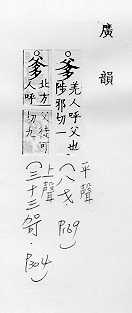 廣韻
爹 羌人呼父也
陟邪切一
平聲
(八戈
P169)
爹 北方人呼父徒可切九
上聲
(三十三哿.
P304)